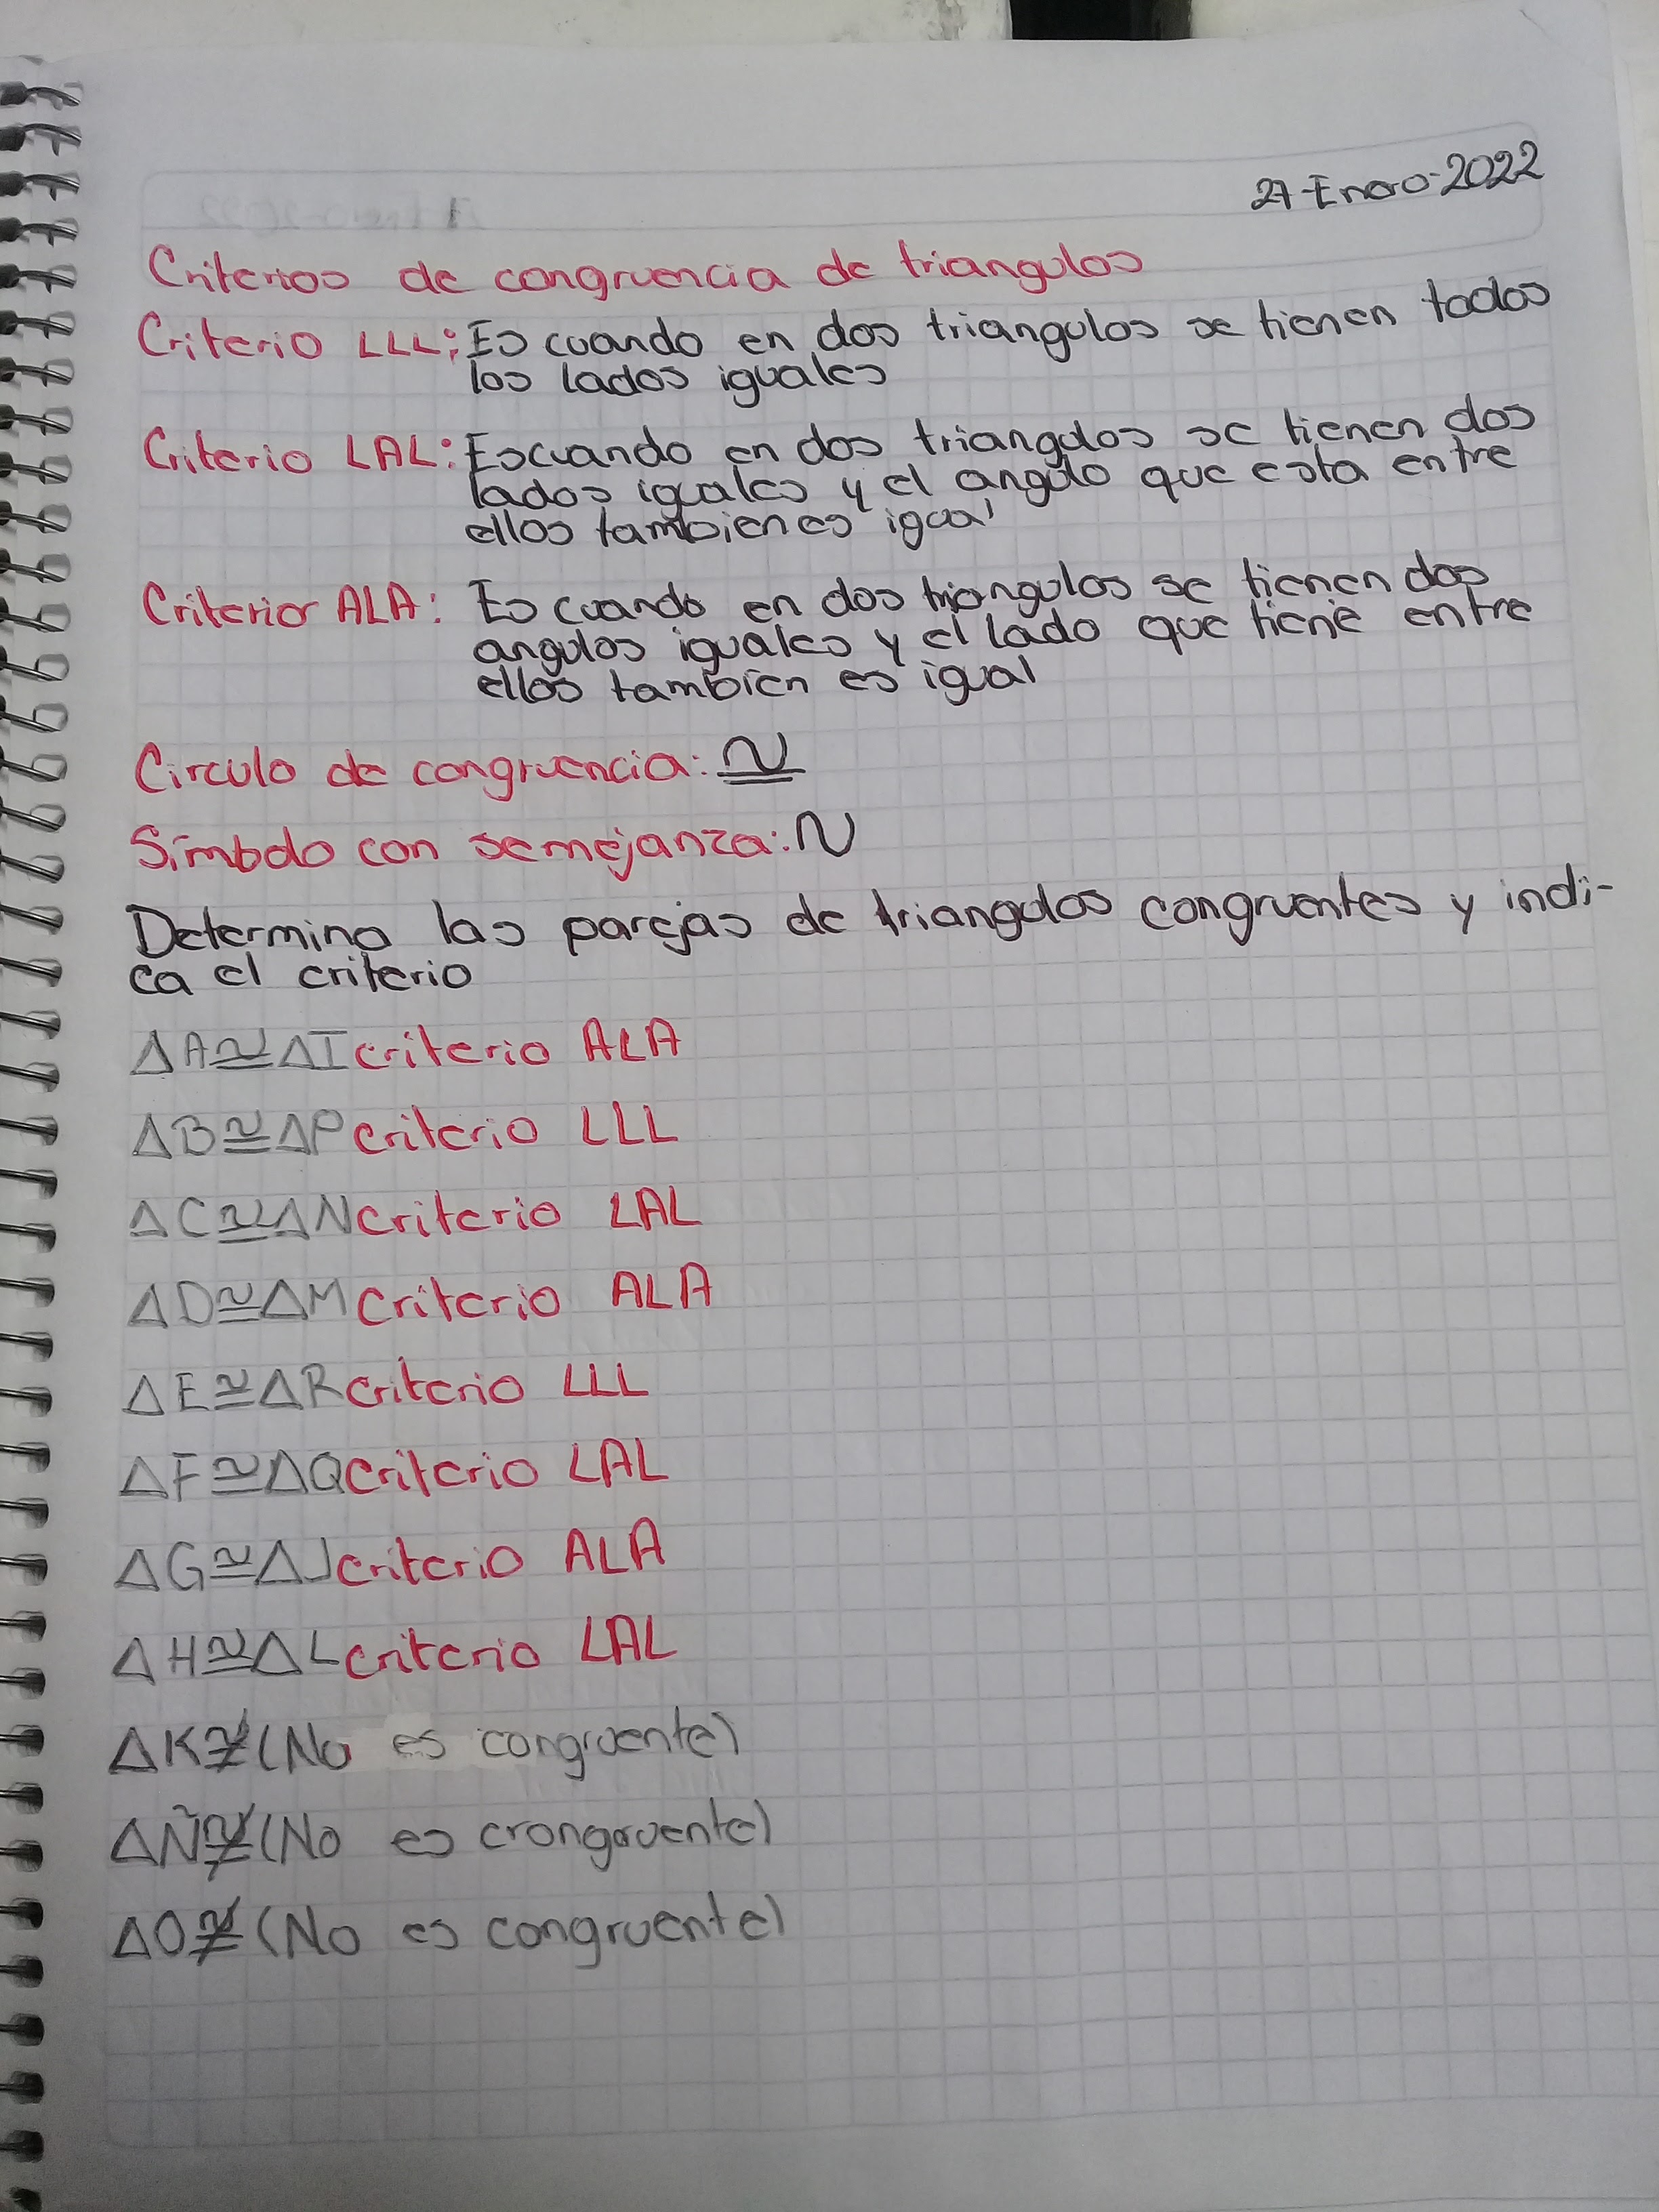 27-Enero-2022
Criterios de congruencia de triangulos
Criterio LLL: Es cuando en dos triangulos se tienen todos
los lados iguales
Criterio LAL: Es cuando en dos triangulos se tienen dos
lados iguales y el angulo que esta entre
ellos tambien es igual
Criterior ALA: Es cuando en dos triangulos se tienen dos
angulos iguales y el lado que tiene entre
ellos tambien es igual
Circulo de congruencia: ≅
Simbolo con semejanza: ~
Determina las parejas de triangulos congruentes y indi-
ca el criterio
△A≅△I criterio ALA
△B≅△P criterio LLL
△C≅△N criterio LAL
△D≅△M criterio ALA
△E≅△R criterio LLL
△F≅△Q criterio LAL
△G≅△J criterio ALA
△H≅△L criterio LAL
△K≇(No es congruente)
△Ñ≇(No es crongruente)
△O≇(No es congruente)